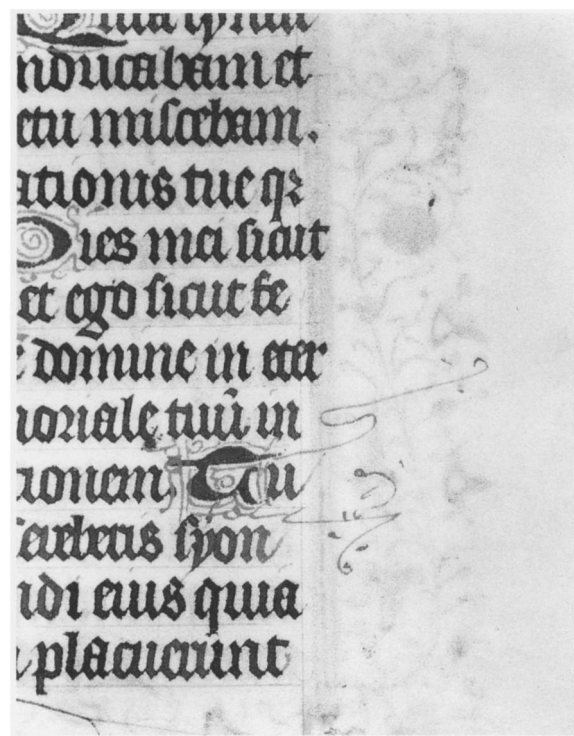 Quia
nducabam et
etu miscebam.
ationis tue qꝛ
Dies mei sicut
et ego sicut fe
domine in eter
moriale tuū in
tionem Tu
sereberis syon
ndi eius quia
placuerunt